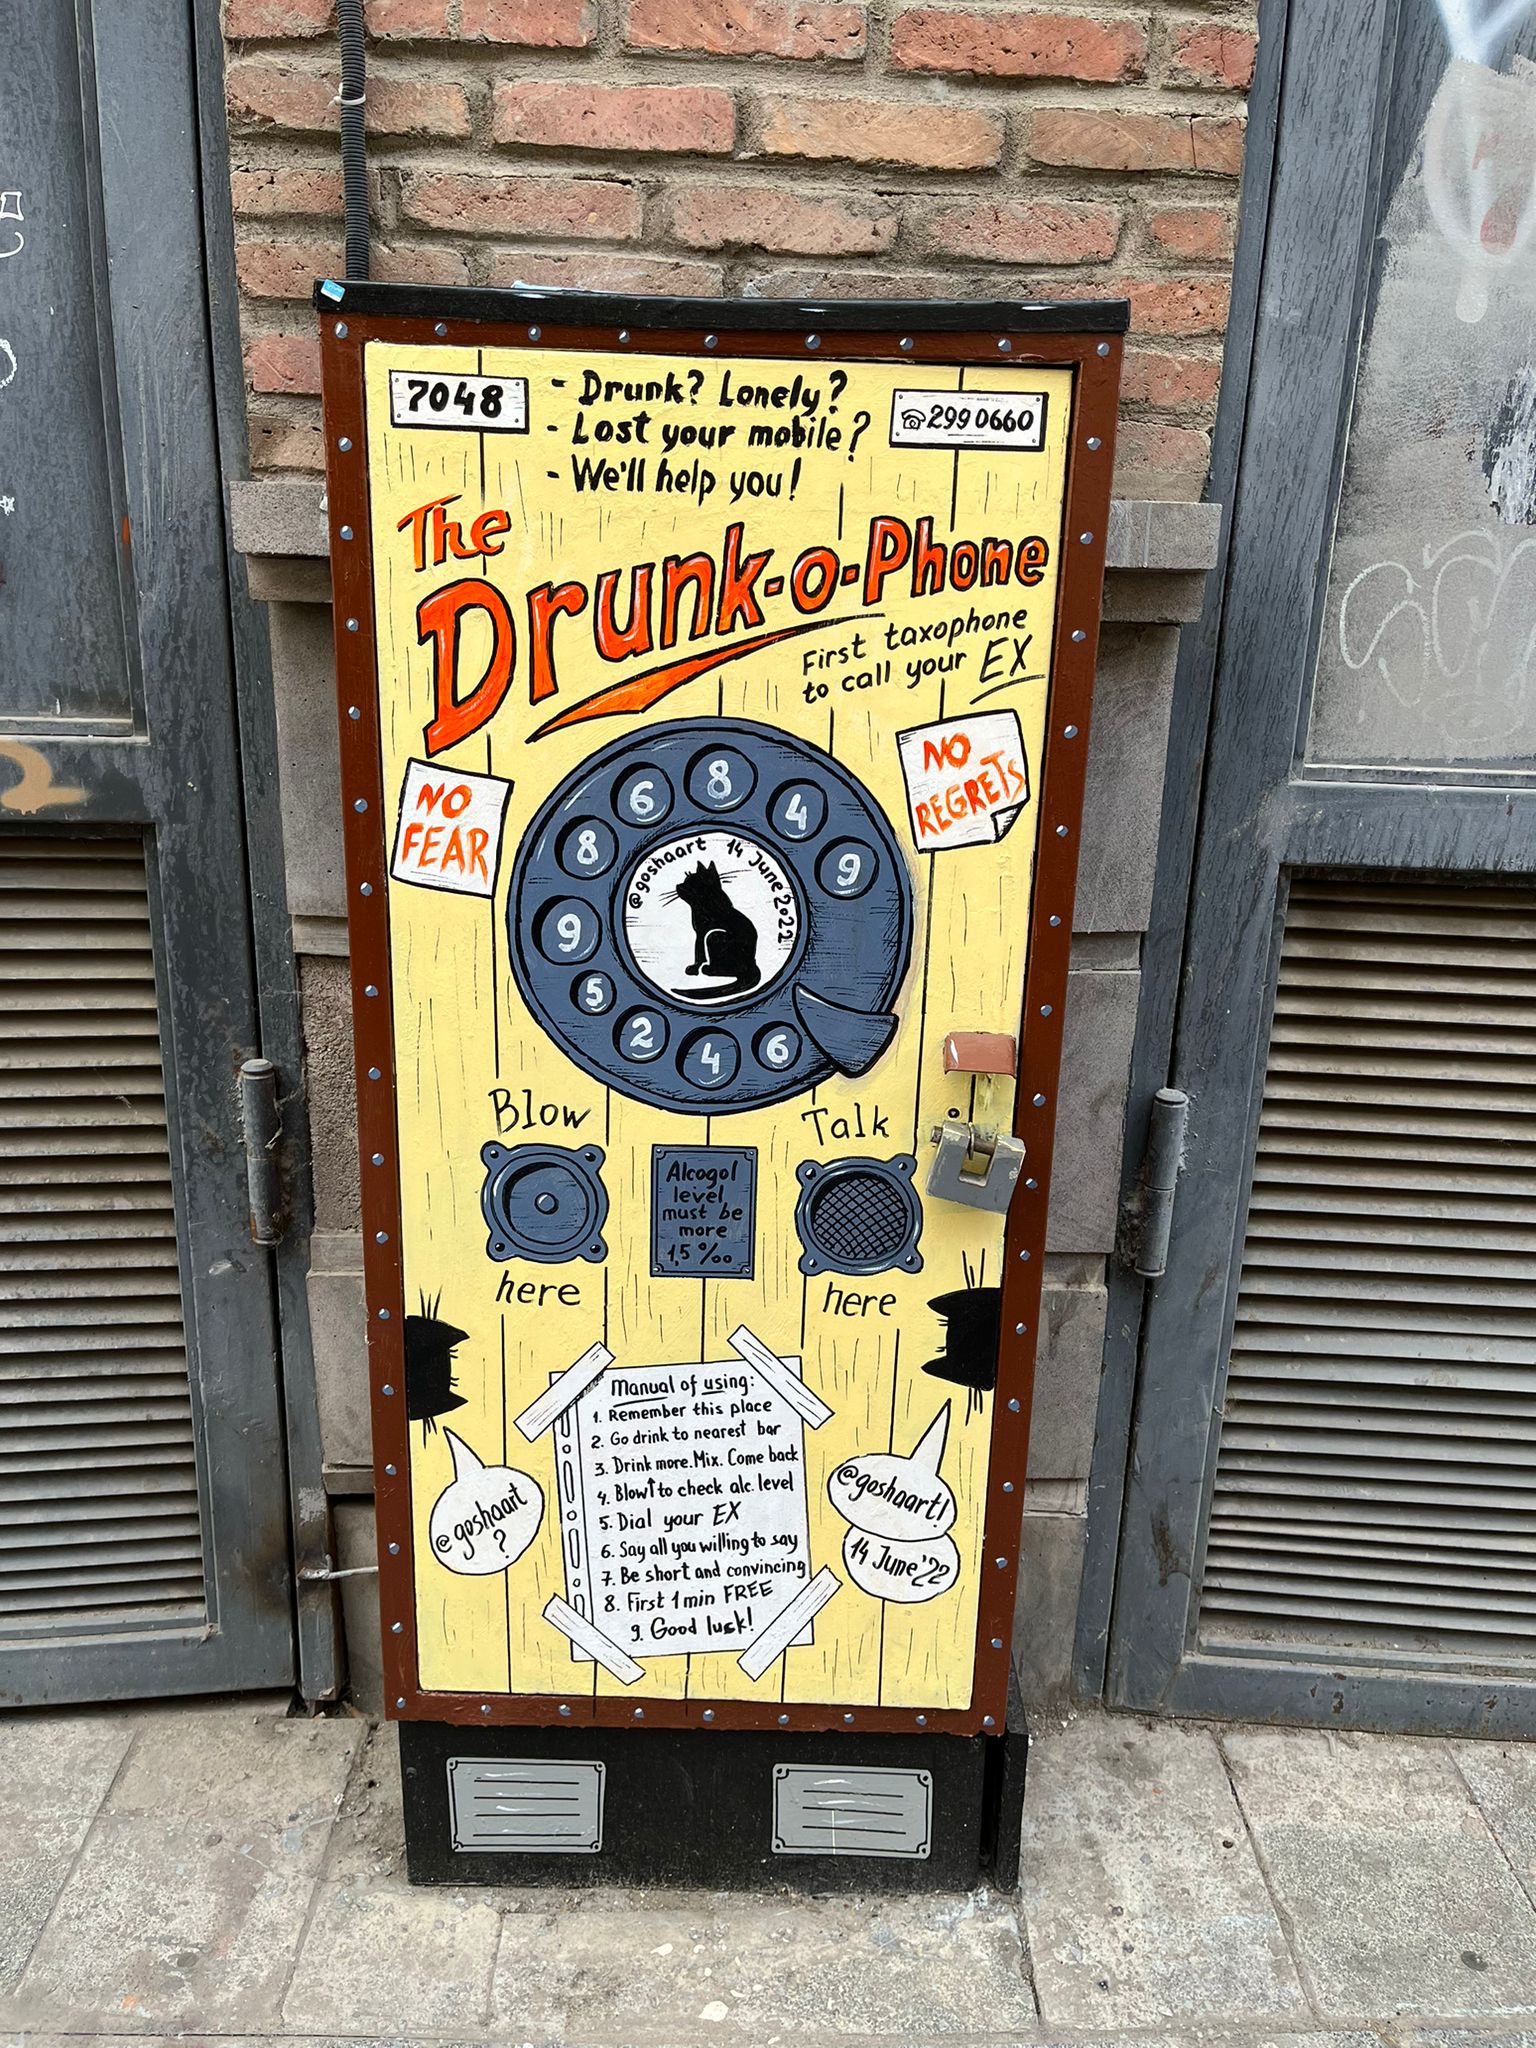 7048
- Drunk? Lonely?
- Lost your mobile?
- We'll help you!
2990660
The
Drunk-o-Phone
First taxophone
to call your EX
NO
FEAR
NO
REGRETS
9
4
8
6
8
9
5
2
4
6
@goshaart 14 June 2022
Blow
here
Alcogol
level
must be
more
1,5 ‰
Talk
here
Manual of using:
1. Remember this place
2. Go drink to nearest bar
3. Drink more. Mix. Come back
4. Blow↑ to check alc. level
5. Dial your EX
6. Say all you willing to say
7. Be short and convincing
8. First 1 min FREE
9. Good lusk!
@goshaart
?
@goshaart!
14 June'22